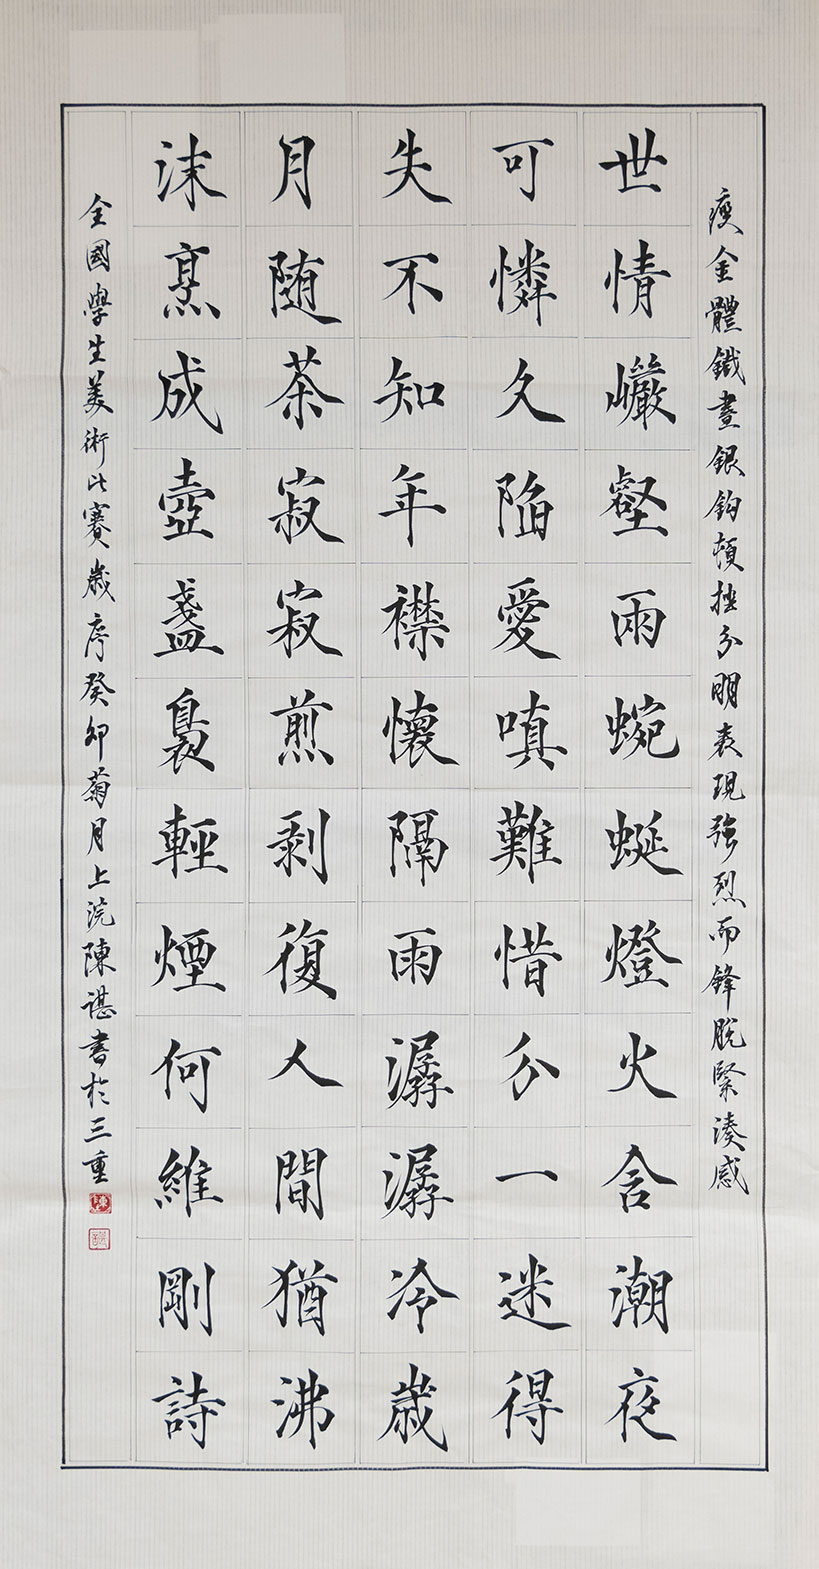 瘦金體鐵畫銀鈎頓挫分明表現強烈而鋒脫緊湊感
世情巘壑雨蜿蜒燈火含潮夜
可憐久陷愛嗔難惜分一迷得
失不知年襟懷隔雨潺潺冷歲
月随茶寂寂煎剩復人間猶沸
沫烹成壺盞裊輕煙何維剛詩
全國學生美術比賽歲序癸卯菊月上浣陳諶書於三重